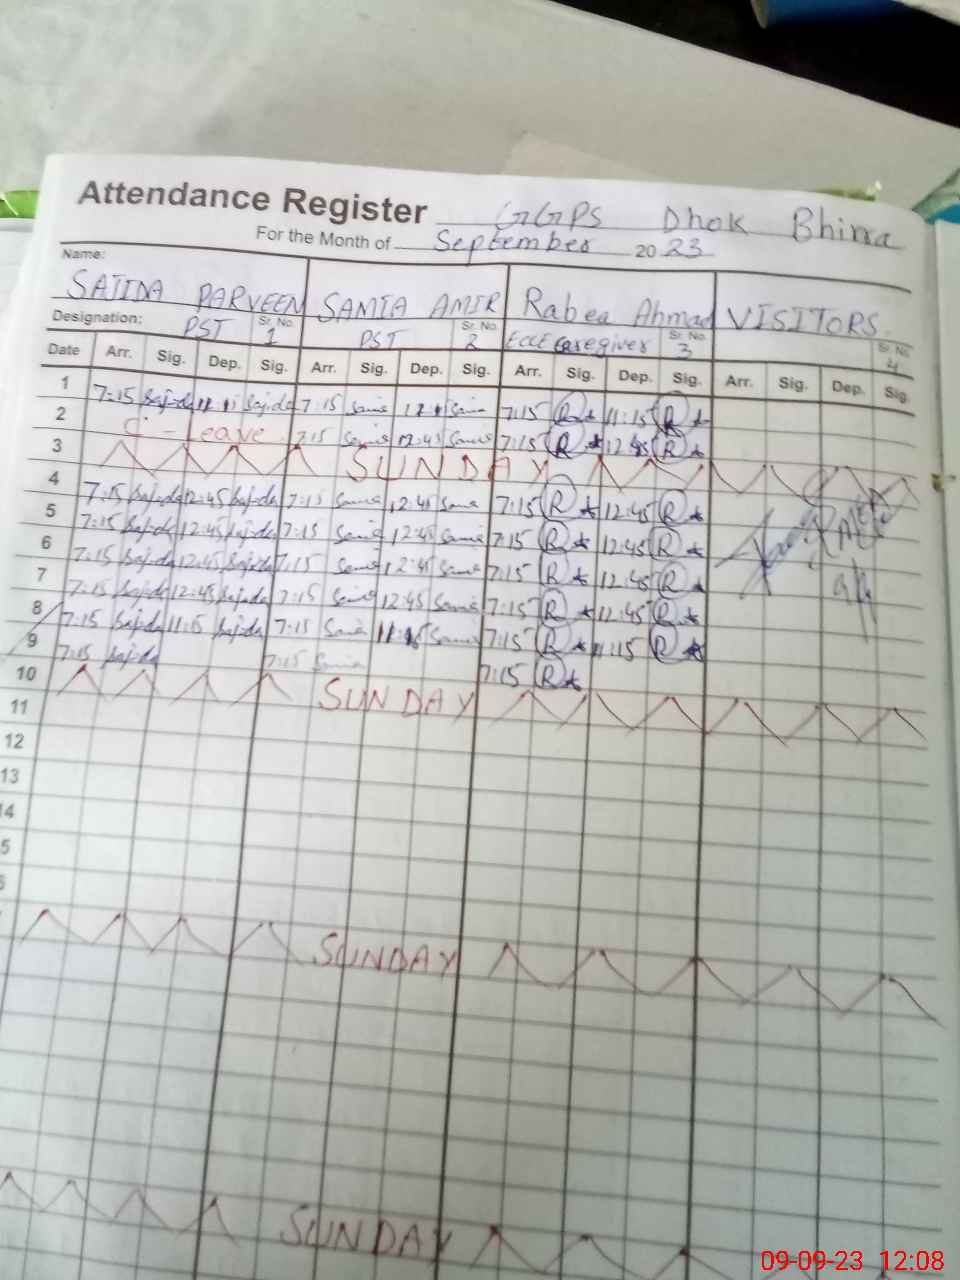 Attendance Register GGPS Dhok Bhirra
For the Month of September 2023
Name:
SAJIDA PARVEEN SAMIA AMIR Rabea Ahmad VISITORS.
Designation: PST Sr. No. 1 PST Sr. No. 2 ECCE Caregiver Sr. No. 3 Sr. No. 4
Date Arr. Sig. Dep. Sig. Arr. Sig. Dep. Sig. Arr. Sig. Dep. Sig. Arr. Sig. Dep. Sig.
1 7:15 Sajida Sajida 7:15 Samia Samia 7:15 R 11:15 R
2 C - Leave 7:15 Samia 12:45 Samia 7:15 R 12:45 R
3 SUNDAY
4 7:15 Sajida 12:45 Sajida 7:15 Samia 12:45 Samia 7:15 R 12:45 R
5 7:15 Sajida 12:45 Sajida 7:15 Samia 12:45 Samia 7:15 R 12:45 R
6 7:15 Sajida 12:45 Sajida 7:15 Samia 12:45 Samia 7:15 R 12:45 R
7 7:15 Sajida 12:45 Sajida 7:15 Samia 12:45 Samia 7:15 R 12:45 R
8 7:15 Sajida 11:15 Sajida 7:15 Samia 11:15 Samia 7:15 R 11:15 R
9 7:15 Sajida 7:15 Samia 7:15 R
10 SUNDAY
11
12
13
14
5
SUNDAY
SUNDAY
09-09-23 12:08